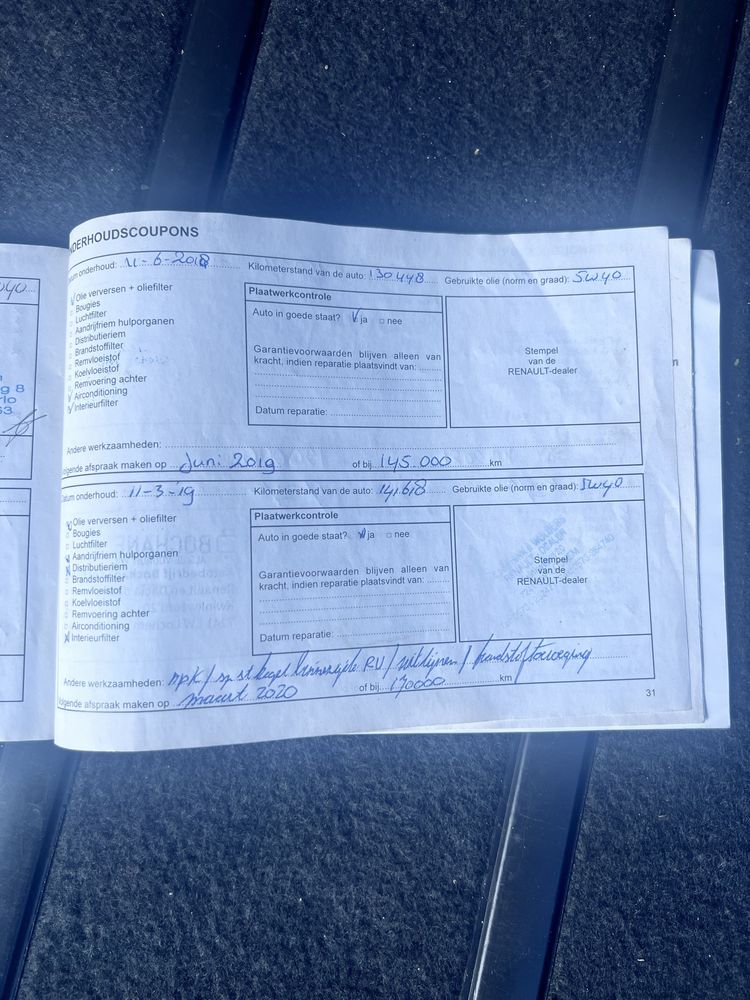 NDERHOUDSCOUPONS
um onderhoud: 11-6-2018 Kilometerstand van de auto: 130448 Gebruikte olie (norm en graad): 5w40
Olie verversen + oliefilter
Bougies
Luchtfilter
Aandrijfriem hulporganen
Distributieriem
Brandstoffilter
Remvloeistof
Koelvloeistof
Remvoering achter
Airconditioning
Interieurfilter
Plaatwerkcontrole
Auto in goede staat? ja nee
Garantievoorwaarden blijven alleen van
kracht, indien reparatie plaatsvindt van:
Datum reparatie:
Stempel
van de
RENAULT-dealer
Andere werkzaamheden:
lgende afspraak maken op Juni 2019 of bij 145.000 km
Datum onderhoud: 11-3-'19 Kilometerstand van de auto: 141618 Gebruikte olie (norm en graad): 5w40
Olie verversen + oliefilter
Bougies
Luchtfilter
Aandrijfriem hulporganen
Distributieriem
Brandstoffilter
Remvloeistof
Koelvloeistof
Remvoering achter
Airconditioning
Interieurfilter
Plaatwerkcontrole
Auto in goede staat? ja nee
Garantievoorwaarden blijven alleen van
kracht, indien reparatie plaatsvindt van:
Datum reparatie:
Stempel
van de
RENAULT-dealer
Andere werkzaamheden: apk / sp st kogel binnenzijde RV / / brandstoftoevoeging
lgende afspraak maken op maart 2020 of bij 170000 km
31